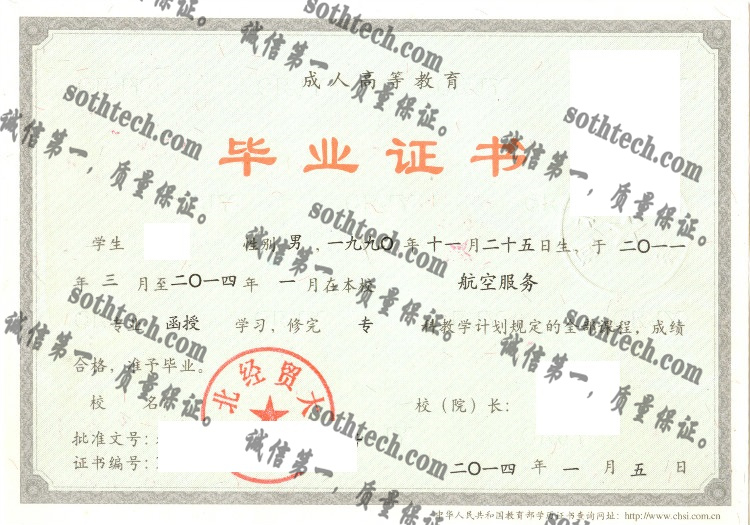 成人高等教育
毕业证书
学生 性别 男 ，一九九〇 年 十一 月 二十五 日生，于 二〇一一
年 三 月至 二〇一四 年 一 月在本校 航空服务
专业 函授 学习，修完 专 科教学计划规定的全部课程，成绩
合格，准予毕业。
北经贸大
校 名 校（院）长：
批准文号：
证书编号：
二〇一四 年 一 月 五 日
中华人民共和国教育部学历证书查询网址：http://www.chsi.com.cn
sothtech.com
诚信第一，质量保证。
sothtech.com
诚信第一，质量保证。
sothtech.com
诚信第一，质量保证。
sothtech.com
诚信第一，质量保证。
sothtech.com
诚信第一，质量保证。
sothtech.com
诚信第一，质量保证。
sothtech.com
诚信第一，质量保证。